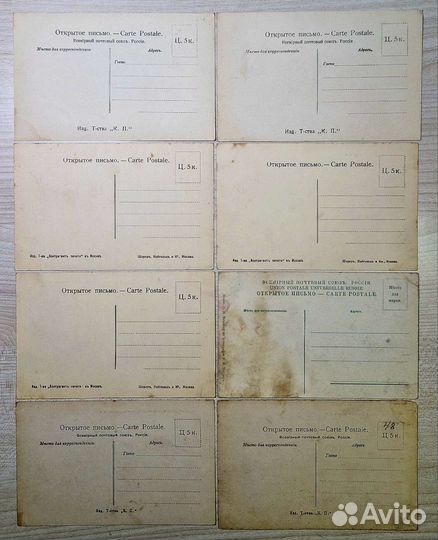 Открытое письмо. — Carte Postale.
Всемірный почтовый союзъ. Россія.
Ц. 5 к.
Мѣсто для корреспонденціи
Адресъ.
Изд. Т-ства „К. П."
Открытое письмо. — Carte Postale.
Всемірный почтовый союзъ. Россія
Ц. 5 к.
Мѣсто для корреспонденціи
Адресъ.
Изд. Т-ства „К. П."
Открытое письмо. — Carte Postale.
Ц. 5 к.
въ Москвѣ.
Москва.
Открытое письмо. — Carte Postale.
Ц. 5 к.
въ Москвѣ.
Москва.
Открытое письмо. — Carte Postale.
Ц. 5 к.
въ Москвѣ.
Москва.
ВСЕМІРНЫЙ ПОЧТОВЫЙ СОЮЗЪ. РОССІЯ
UNION POSTALE UNIVERSELLE RUSSIE
ОТКРЫТОЕ ПИСЬМО — CARTE POSTALE
Мѣсто
для
марки.
Открытое письмо. — Carte Postale.
Всемірный почтовый союзъ. Россія.
Ц. 5 к.
Мѣсто для корреспонденціи
Адресъ
Изд. Т-ства „К. П."
Открытое письмо. — Carte Postale.
Всемірный почтовый союзъ. Россія.
48
Ц. 5 к.
Мѣсто для корреспонденціи
Адресъ
Изд. Т-ства „К. П."
Avito